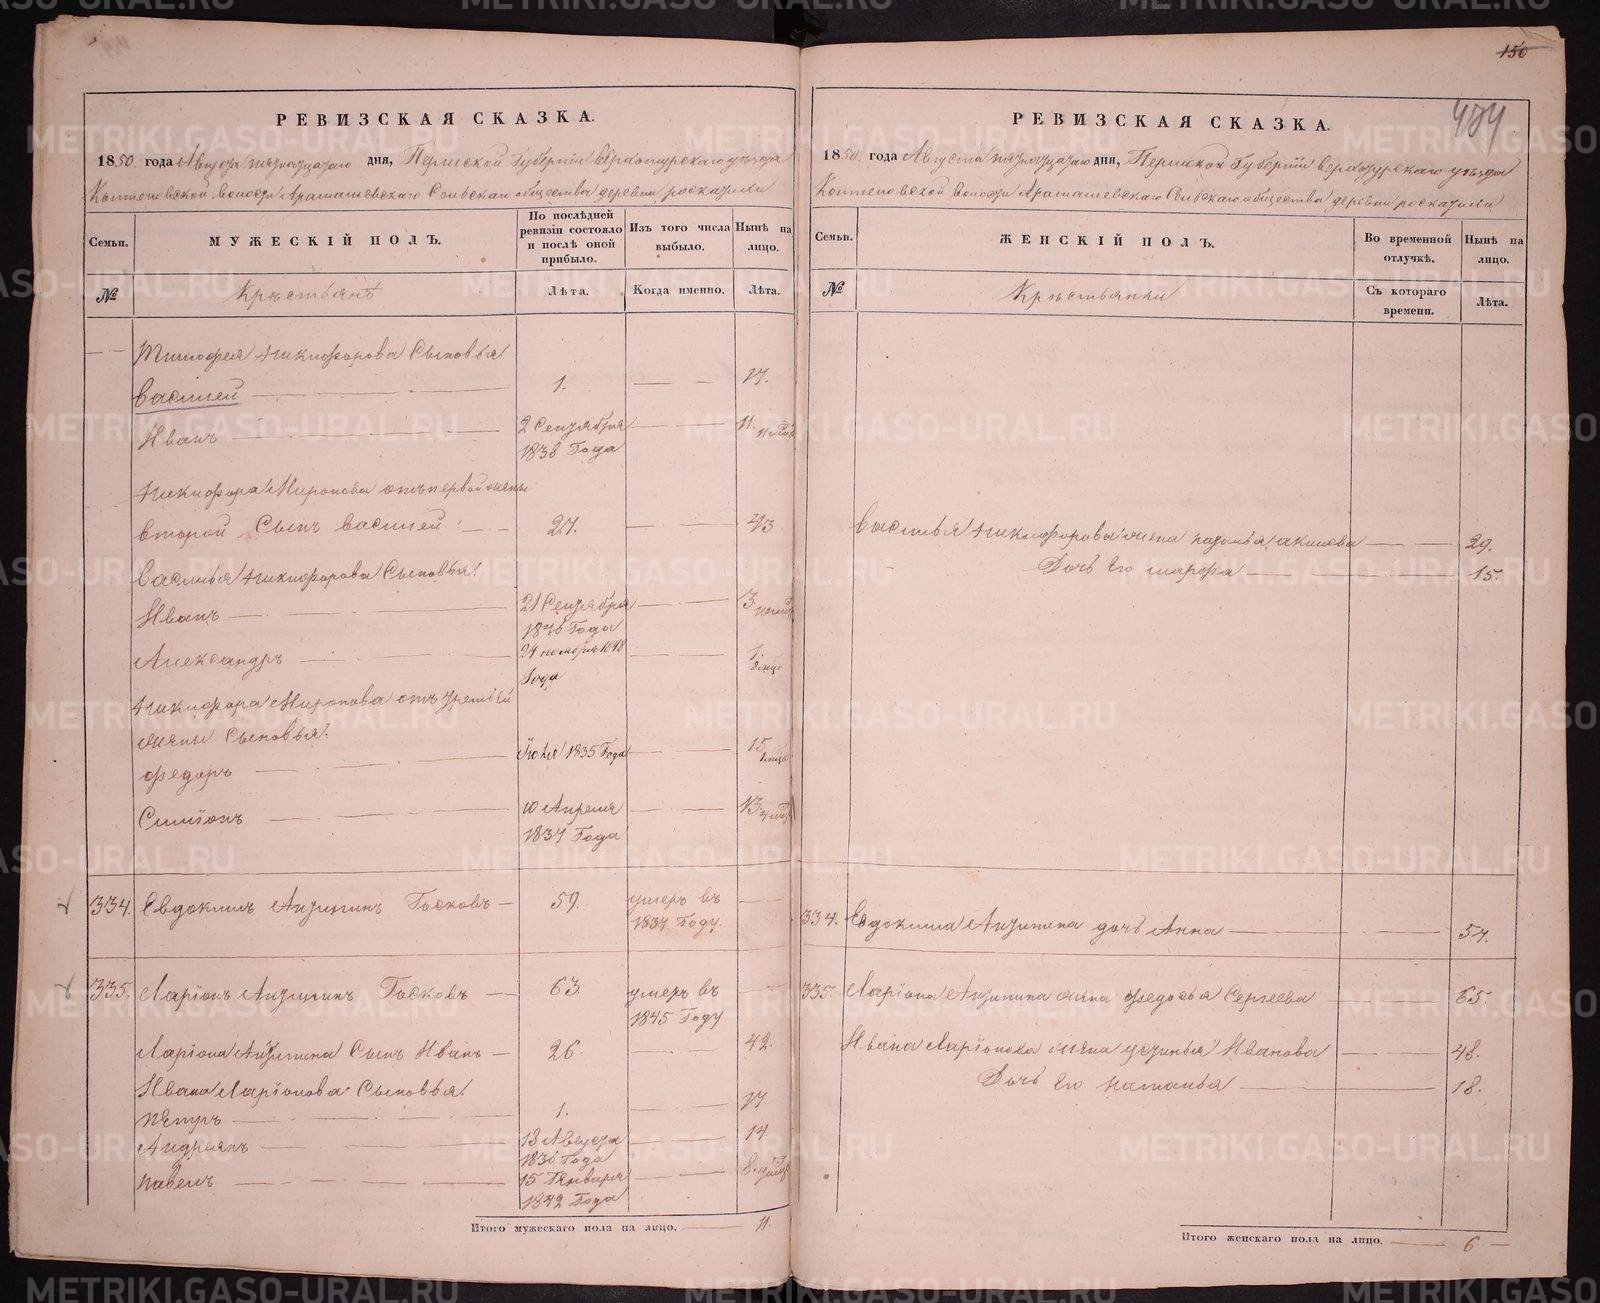 150
434
РЕВИЗСКАЯ СКАЗКА.
1850 года Августа пятнадцатаго дня, Пермской Губернiи верхотурскаго уѣзда
Коптеловской волости Арамашевскаго Сельскаго общества деревни
Семьи.
МУЖЕСКIЙ ПОЛЪ.
По послѣдней ревизiи состояло и послѣ оной прибыло.
Изъ того числа выбыло.
Нынѣ на лицо.
№
Крѣстьянѣ
Лѣта.
Когда именно.
Лѣта.
Тимофея Никифорова Сыновья:
Василей 1. 17.
Иванъ 2 Сентября 1838 Года 11. 11 мѣс
Никифора Миронова отъ первой жены
второй Сынъ Василей 27. 43
Василья Никифорова Сыновья:
Иванъ 21 Сентября 1846 Года 3
Александръ 24 ноября 1848 Года 1. 8 мѣс
Никифора Миронова отъ третьей
жены Сыновья:
Федоръ Iюля 1835 Года 15
Симiонъ 10 Апреля 1837 Года 13
334. Евдокимъ Антипинъ Госковъ 59. умеръ въ 1837 Году.
335. Ларiонъ Антипинъ Госковъ 63. умеръ въ 1845 Году
Ларiона Антипина Сынъ Иванъ 26. 42.
Ивана Ларiонова Сыновья:
Петръ 1. 17.
Андреянъ 18 Августа 1836 Года 14.
Павелъ 15 Генваря 1842 Года 8.
Итого мужескаго пола на лицо. 11.
РЕВИЗСКАЯ СКАЗКА.
1850 года Августа пятнадцатаго дня, Пермской Губернiи верхотурскаго уѣзда
Коптеловской волости Арамашевскаго Сельскаго общества деревни
Семьи.
ЖЕНСКIЙ ПОЛЪ.
Во временной отлучкѣ.
Нынѣ на лицо.
№
Крѣстьянки
Съ котораго времени.
Лѣта.
Василья Никифорова жена 29.
Дочь Его марфа 15.
334. Евдокима Антипина дочь Анна 57.
335. Ларiона Антипина жена Федосья Сергеева 65.
Ивана Ларiонова жена устинья Иванова 48.
Дочь Его наталья 18.
Итого женскаго пола на лицо. 6
METRIKI.GASO-URAL.RU